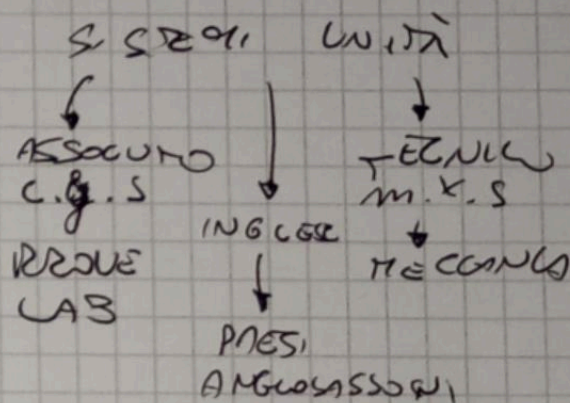 SISTEMI UNITÀ
ASSOLUTO
C.G.S
PROVE
LAB
INGLESE
PAESI
ANGLOSASSONI
TECNICO
M.K.S
MECCANICA